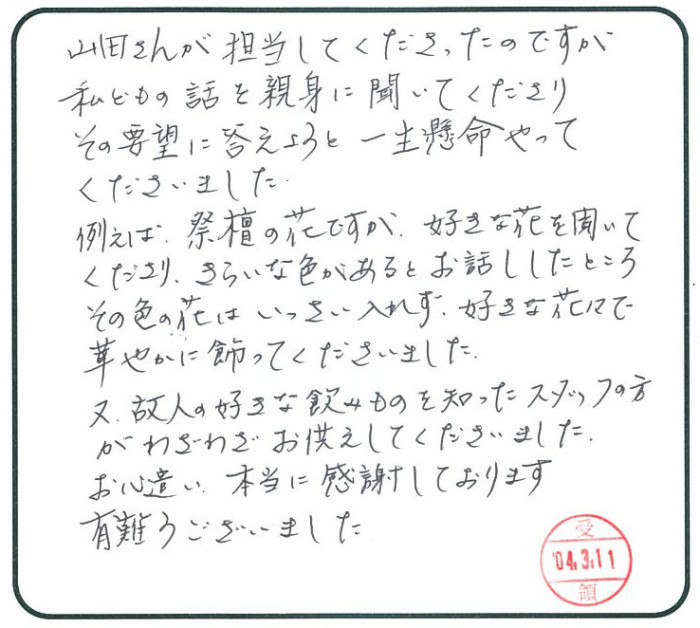 山田さんが担当してくださったのですが
私どもの話を親身に聞いてくださり
その要望に答えようと一生懸命やって
くださいました.
例えば.祭檀の花ですが.好きな花を聞いて
くださり.きらいな色があるとお話ししたところ
その色の花はいっさい入れず.好きな花々で
華やかに飾ってくださいました.
又.故人の好きな飲みものを知ったスタッフの方
がわざわざお供えしてくださいました.
お心遣い.本当に感謝しております
有難うございました
受
'04.3.11
領